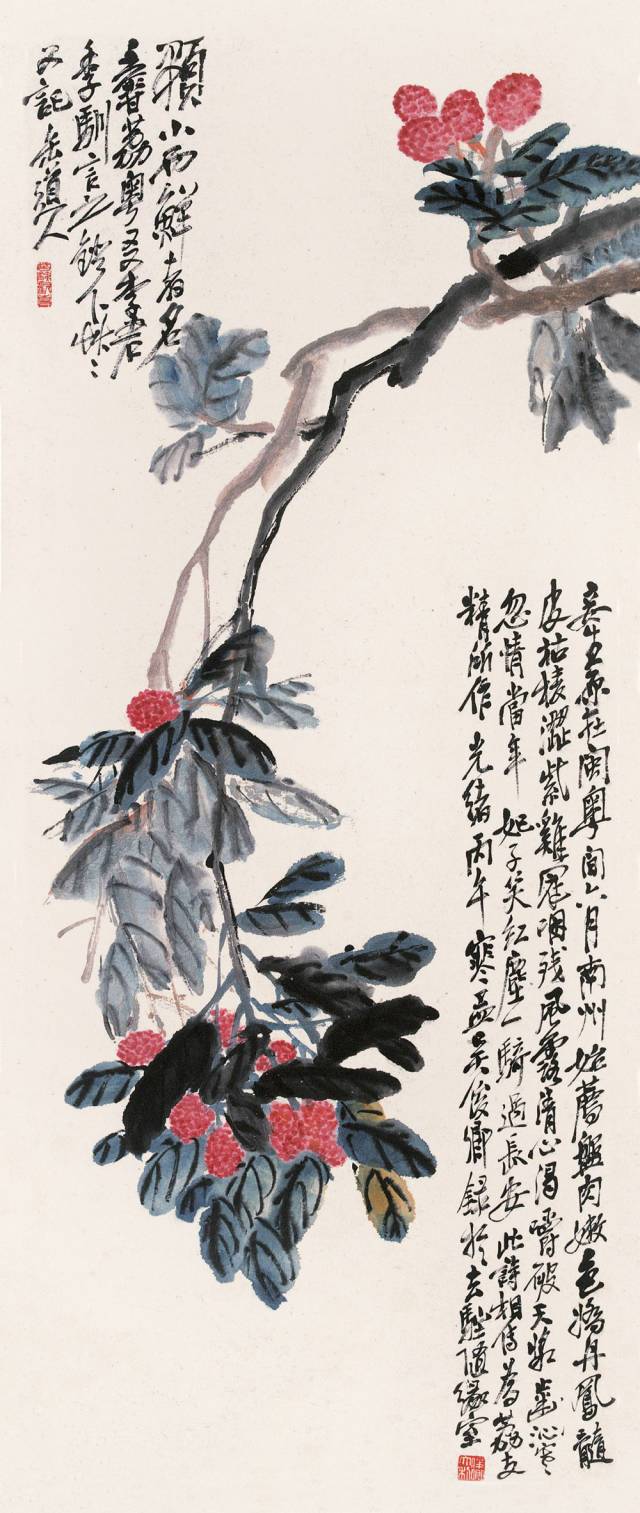 妾生原在閩粵間六月南州始薦盤肉嫩色嬌丹鳳髓
皮枯棱澀紫雞冠咽殘風露清心渴嚼破天漿齒沁寒
忽情當年妃子笑紅塵一騎過長安此詩相傳爲荔支
精所作光緒丙午寒孟吳俊卿錄於去駐隨緣室
顆小而鮮者名
荔粵友李君
季馴言之下
又記缶道人